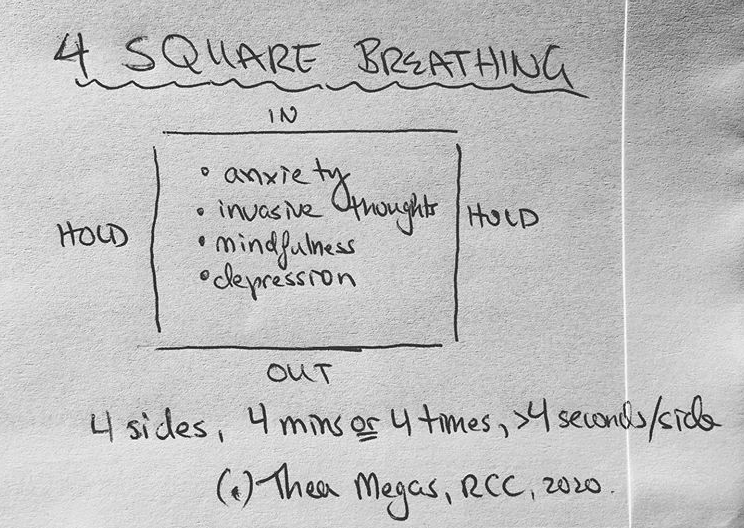 4 SQUARE BREATHING
IN
• anxiety
• invasive thoughts
HOLD
HOLD
• mindfulness
• depression
OUT
4 sides, 4 mins or 4 times, >4 seconds/side
(c) Thea Megas, RCC, 2020.